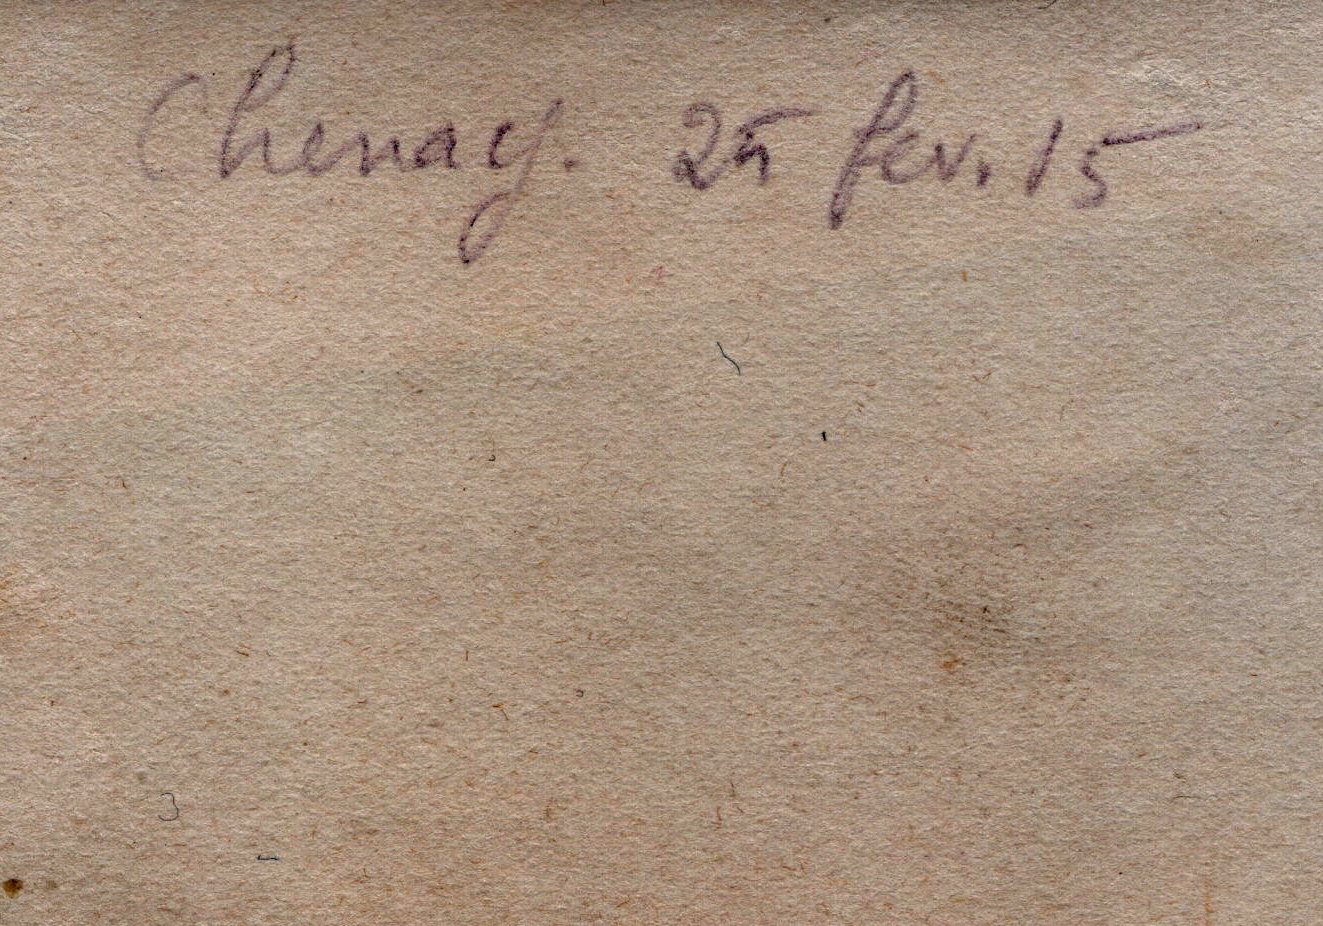 Chenay. 25 fev. 15